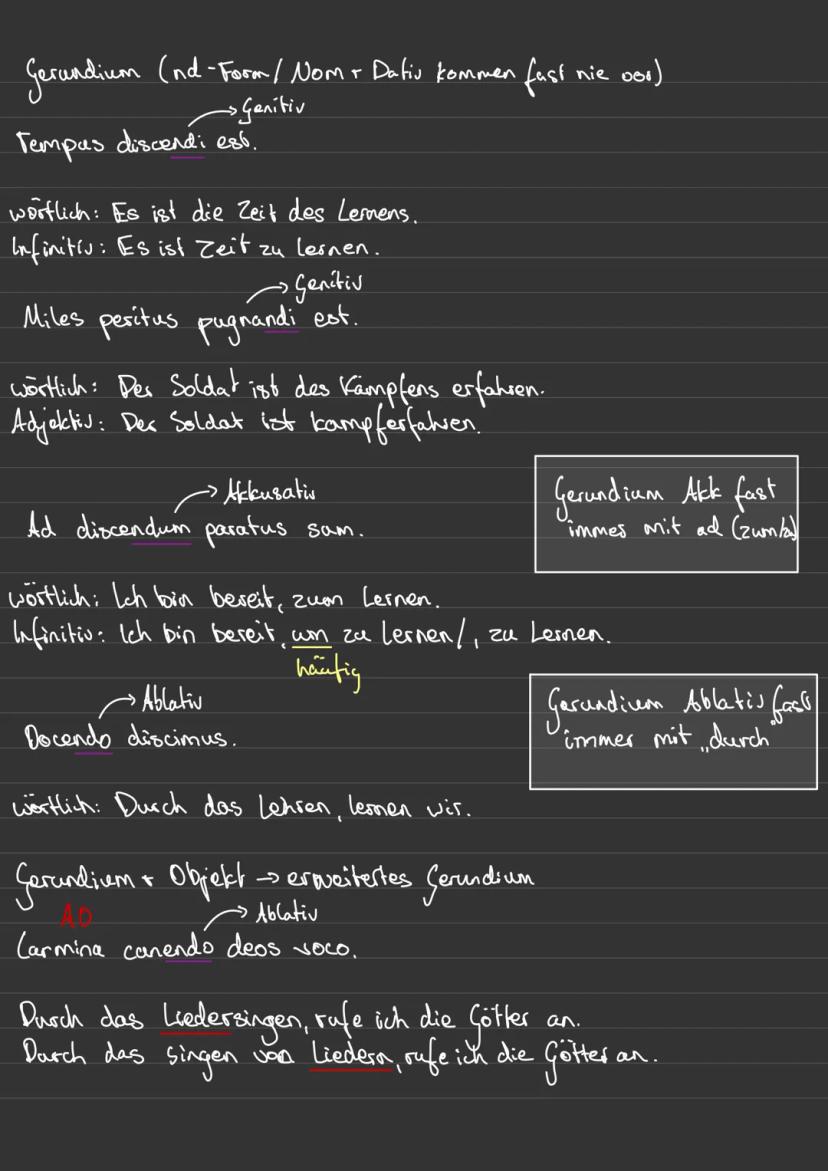 Gerundium (nd-Form / Nom + Dativ kommen fast nie vor)
→ Genitiv
Tempus discendi est.
wörtlich: Es ist die Zeit des Lernens.
Infinitiv: Es ist Zeit zu lernen.
→ Genitiv
Miles peritus pugnandi est.
wörtlich: Der Soldat ist des Kämpfens erfahren.
Adjektiv: Der Soldat ist kampferfahren.
→ Akkusativ
Ad discendum paratus sum.
Gerundium Akk fast
immer mit ad (zum/zu)
wörtlich: Ich bin bereit, zum Lernen.
Infinitiv: Ich bin bereit, um zu lernen/, zu Lernen.
häufig
→ Ablativ
Docendo discimus.
Gerundium Ablativ fast
immer mit „durch"
wörtlich: Durch das Lehren, lernen wir.
Gerundium + Objekt → erweitertes Gerundium
AO
→ Ablativ
Carmina canendo deos voco.
Durch das Liedersingen, rufe ich die Götter an.
Durch das singen von Liedern, rufe ich die Götter an.